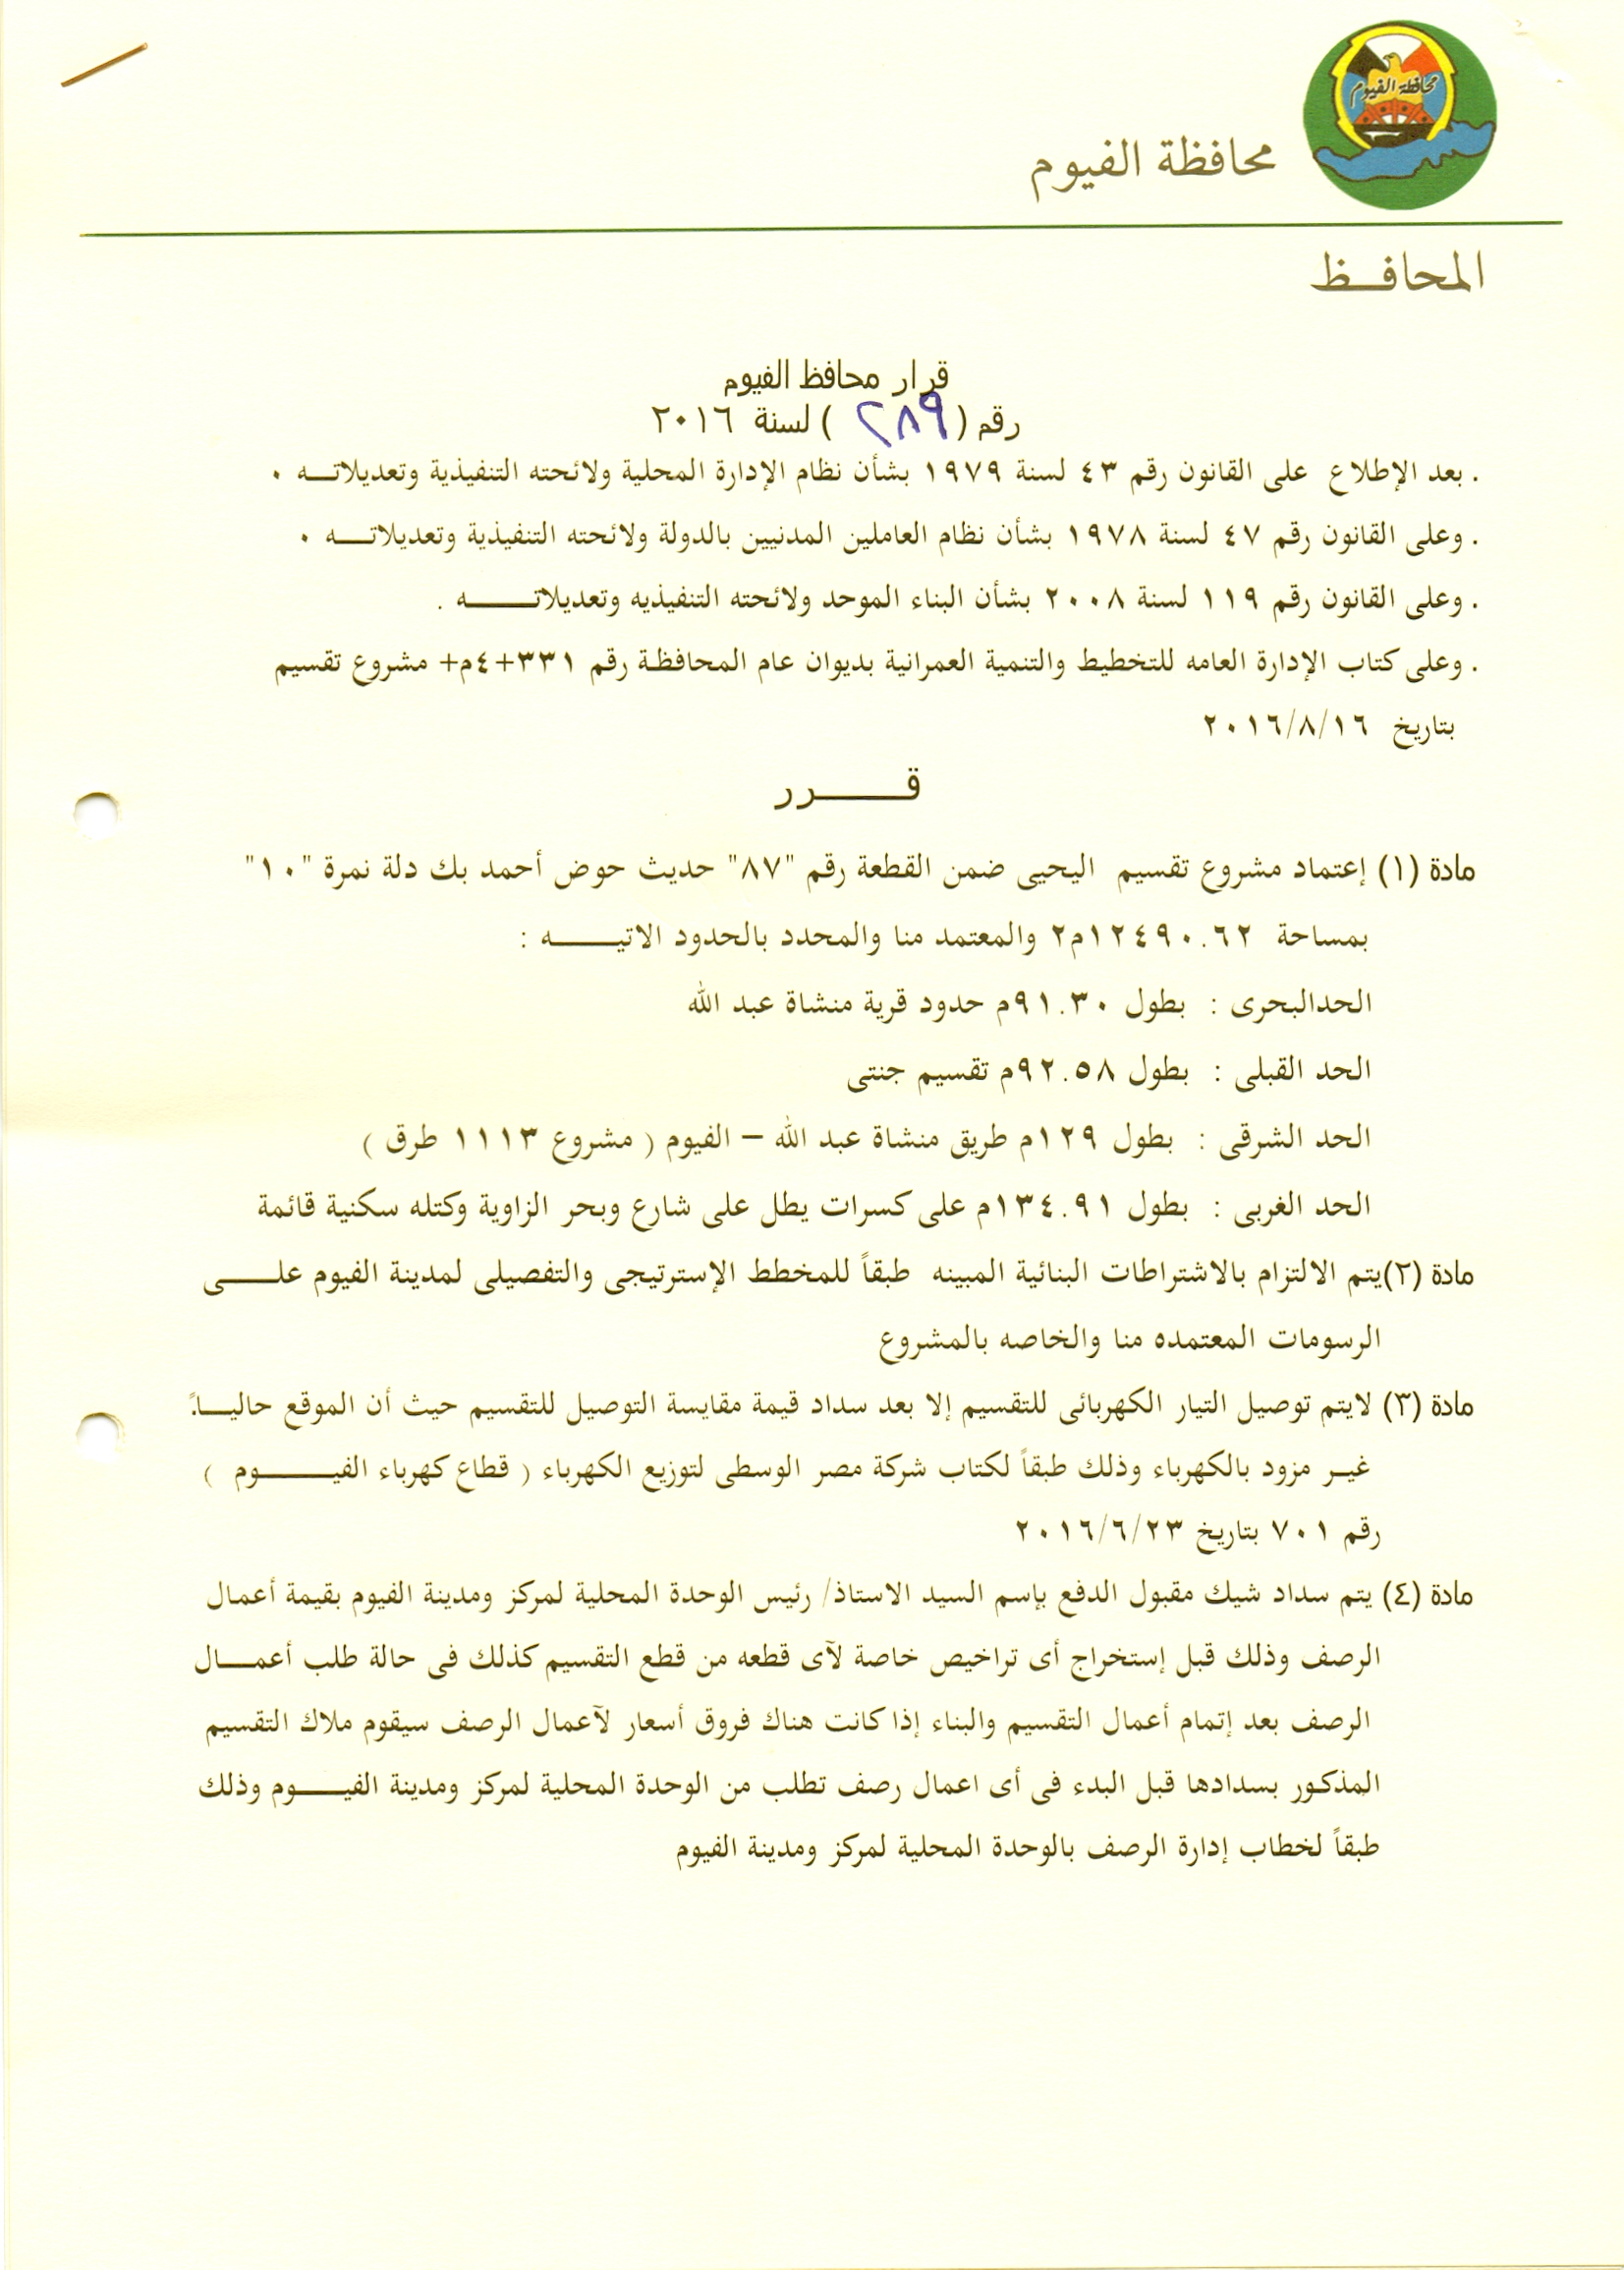 محافظة الفيوم
محافظة الفيوم
المحافــظ
قرار محافظ الفيوم
رقم ( ٢٨٩ ) لسنة ٢٠١٦
. بعد الإطلاع على القانون رقم ٤٣ لسنة ١٩٧٩ بشأن نظام الإدارة المحلية ولائحته التنفيذية وتعديلاتــه ٠
. وعلى القانون رقم ٤٧ لسنة ١٩٧٨ بشأن نظام العاملين المدنيين بالدولة ولائحته التنفيذية وتعديلاتــه ٠
. وعلى القانون رقم ١١٩ لسنة ٢٠٠٨ بشأن البناء الموحد ولائحته التنفيذيه وتعديلاتــــه .
. وعلى كتاب الإدارة العامه للتخطيط والتنمية العمرانية بديوان عام المحافظة رقم ٣٣١+٤م+ مشروع تقسيم
بتاريخ ٢٠١٦/٨/١٦
قــــرر
مادة (١) إعتماد مشروع تقسيم اليحيى ضمن القطعة رقم "٨٧" حديث حوض أحمد بك دلة نمرة "١٠"
بمساحة ١٢٤٩٠.٦٢م٢ والمعتمد منا والمحدد بالحدود الاتيــــه :
الحدالبحرى : بطول ٩١.٣٠م حدود قرية منشاة عبد الله
الحد القبلى : بطول ٩٢.٥٨م تقسيم جنتى
الحد الشرقى : بطول ١٢٩م طريق منشاة عبد الله – الفيوم ( مشروع ١١١٣ طرق )
الحد الغربى : بطول ١٣٤.٩١م على كسرات يطل على شارع وبحر الزاوية وكتله سكنية قائمة
مادة (٢)يتم الالتزام بالاشتراطات البنائية المبينه طبقاً للمخطط الإسترتيجى والتفصيلى لمدينة الفيوم علــــى
الرسومات المعتمده منا والخاصه بالمشروع
مادة (٣) لايتم توصيل التيار الكهربائى للتقسيم إلا بعد سداد قيمة مقايسة التوصيل للتقسيم حيث أن الموقع حاليــاً
غيـر مزود بالكهرباء وذلك طبقاً لكتاب شركة مصر الوسطى لتوزيع الكهرباء ( قطاع كهرباء الفيـــــوم )
رقم ٧٠١ بتاريخ ٢٠١٦/٦/٢٣
مادة (٤) يتم سداد شيك مقبول الدفع بإسم السيد الاستاذ/ رئيس الوحدة المحلية لمركز ومدينة الفيوم بقيمة أعمال
الرصف وذلك قبل إستخراج أى تراخيص خاصة لآى قطعه من قطع التقسيم كذلك فى حالة طلب أعمــــال
الرصف بعد إتمام أعمال التقسيم والبناء إذا كانت هناك فروق أسعار لآعمال الرصف سيقوم ملاك التقسيم
المذكـور بسدادها قبل البدء فى أى اعمال رصف تطلب من الوحدة المحلية لمركز ومدينة الفيــــوم وذلك
طبقاً لخطاب إدارة الرصف بالوحدة المحلية لمركز ومدينة الفيوم